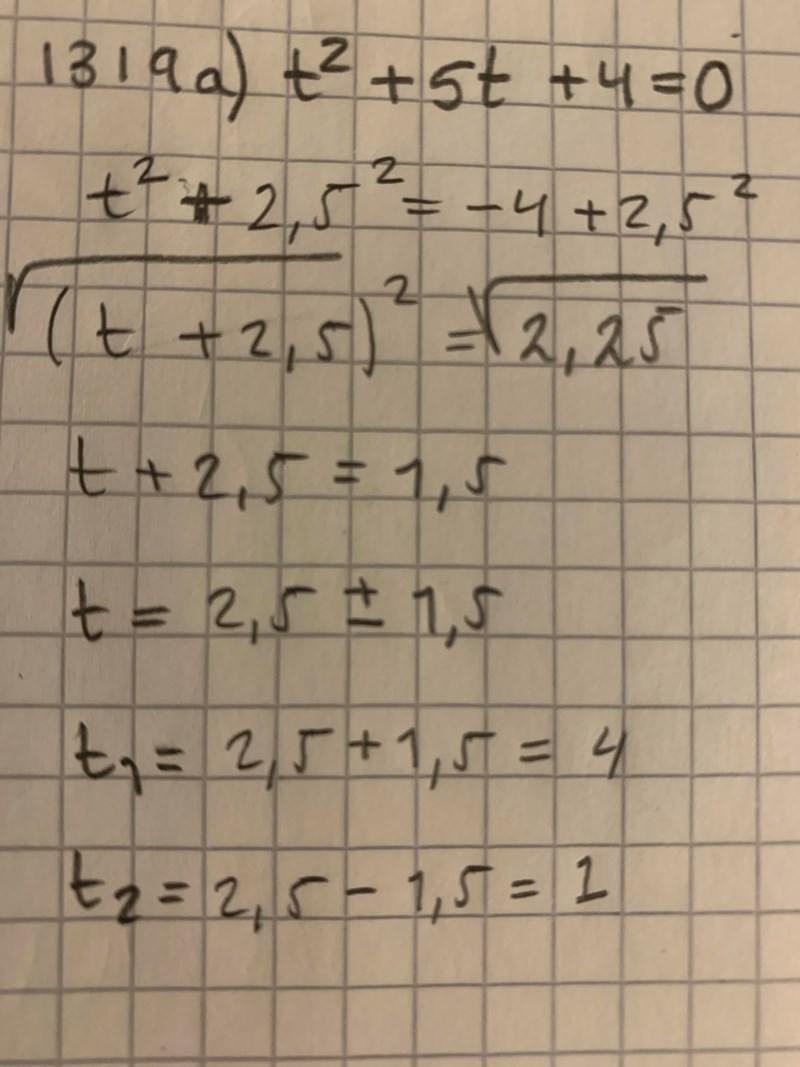 1319a) t² + 5t + 4 = 0
t² + 2,5² = -4 + 2,5²
√(t + 2,5)² = √2,25
t + 2,5 = 1,5
t = 2,5 ± 1,5
t₁ = 2,5 + 1,5 = 4
t₂ = 2,5 - 1,5 = 1